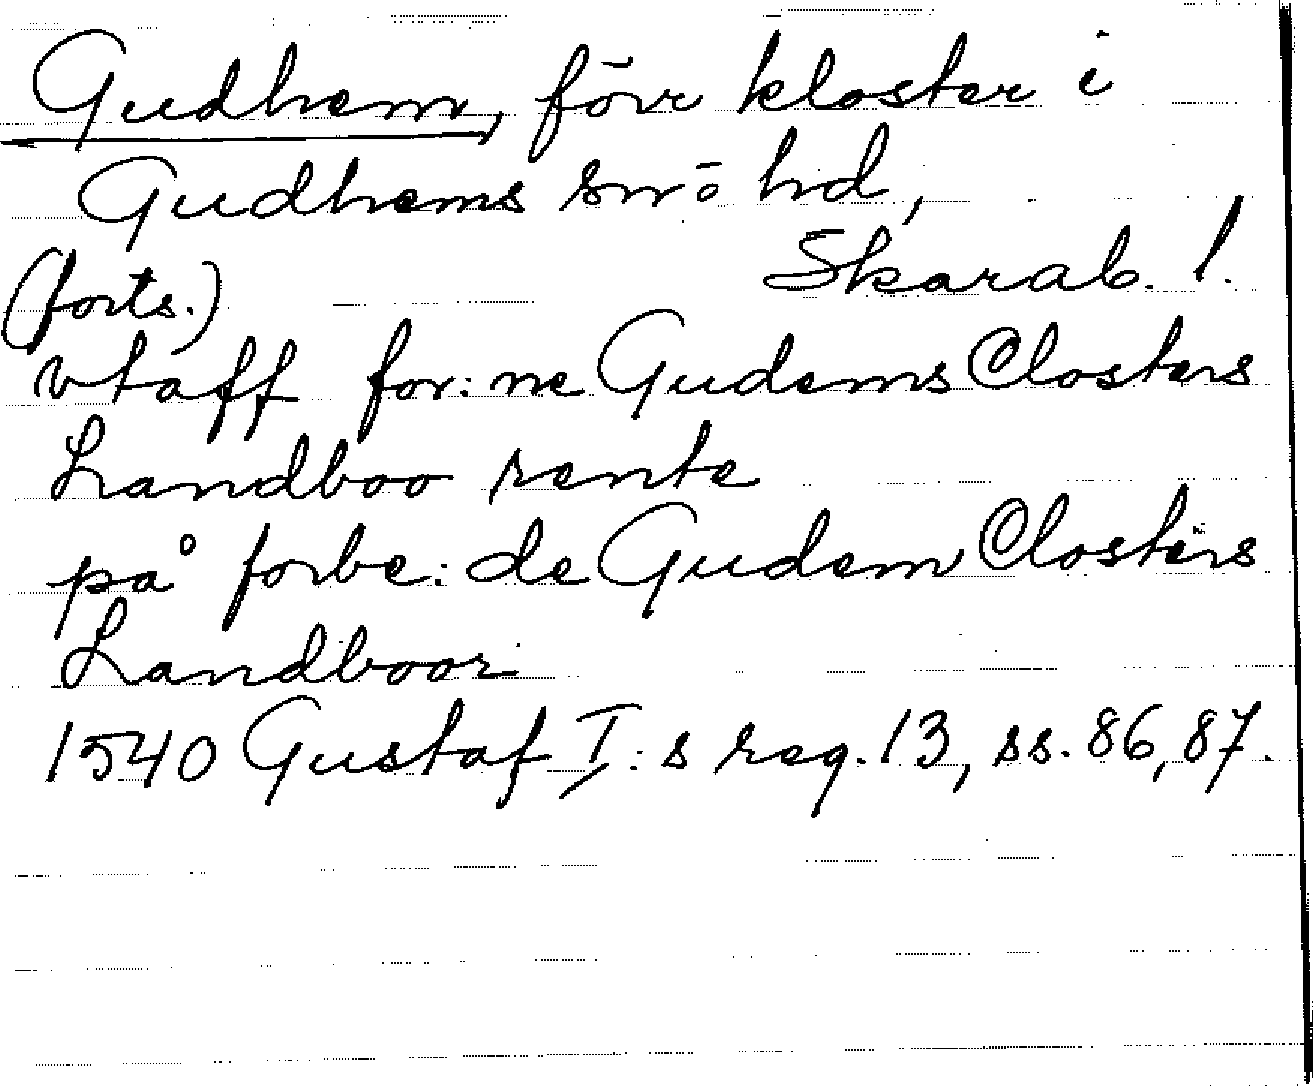 Gudhem, förr kloster i
Gudhems sn o hd,
Skarab. l.
(forts.)
vtaff for: ne Gudems Closters
Landboo rente
på forbe: de Gudem Closters
Landboor
1540 Gustaf I: s reg. 13, ss. 86, 87.